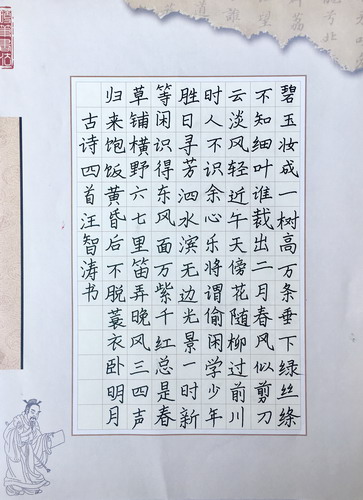 碧玉妆成一树高万条垂下绿丝绦
不知细叶谁裁出二月春风似剪刀
云淡风轻近午天傍花随柳过前川
时人不识余心乐将谓偷闲学少年
胜日寻芳泗水滨无边光景一时新
等闲识得东风面万紫千红总是春
草铺横野六七里笛弄晚风三四声
归来饱饭黄昏后不脱蓑衣卧明月
古诗四首汪智涛书